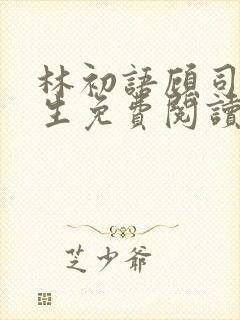 林初語顧司
生免費閱讀
芝少爺